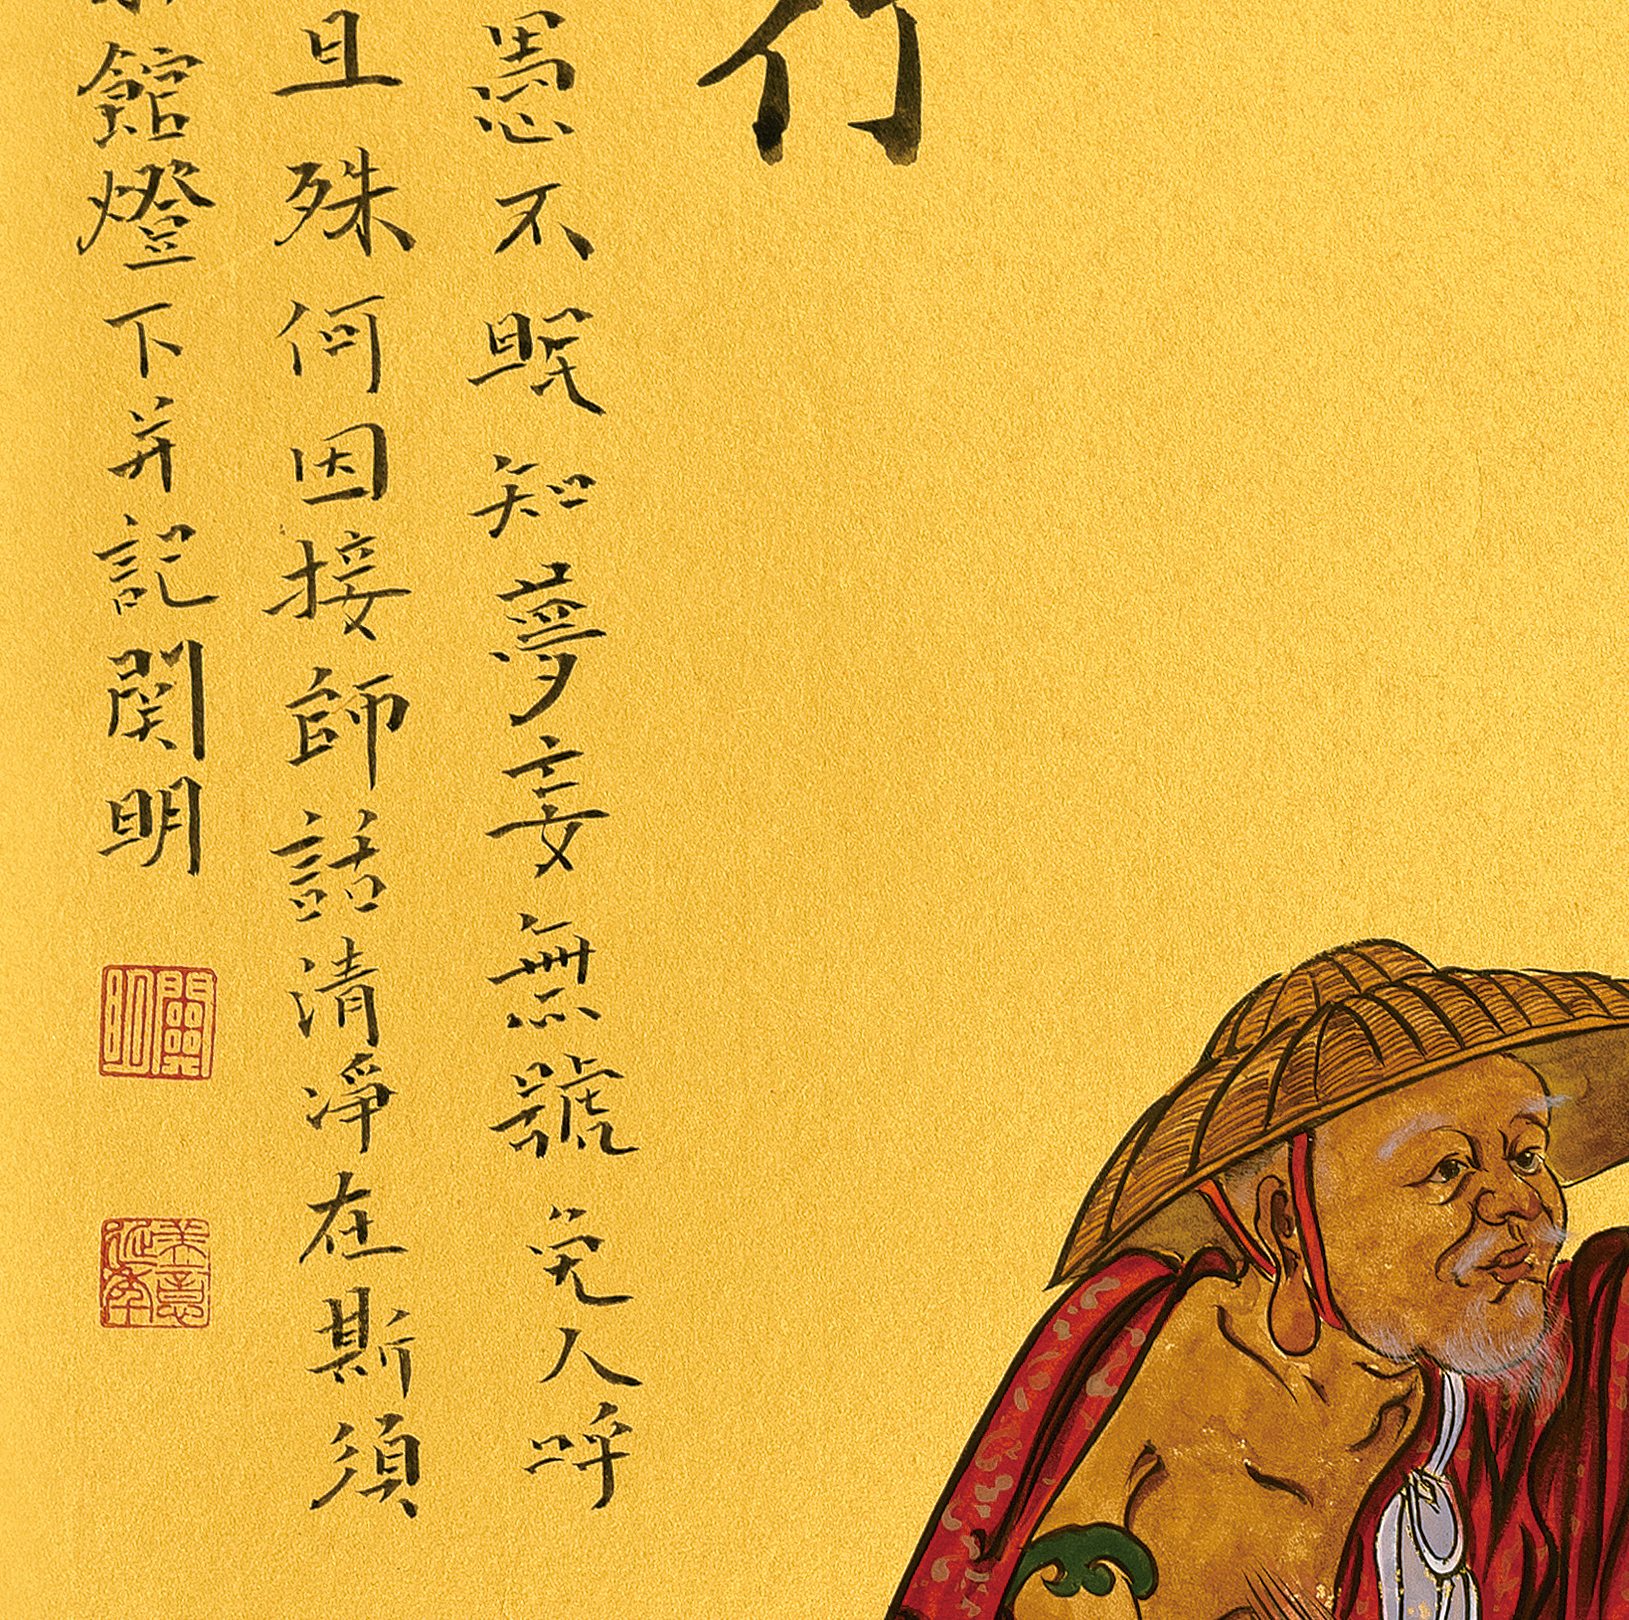 愚不眠知夢妄無號免人呼
且殊何因接師話清淨在斯須
館燈下并記関明
關明
美意延年